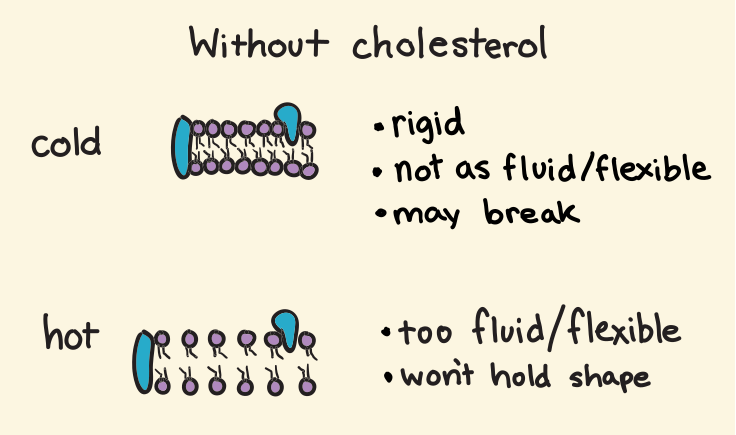 Without cholesterol
cold
• rigid
• not as fluid/flexible
• may break
hot
• too fluid/flexible
• won't hold shape